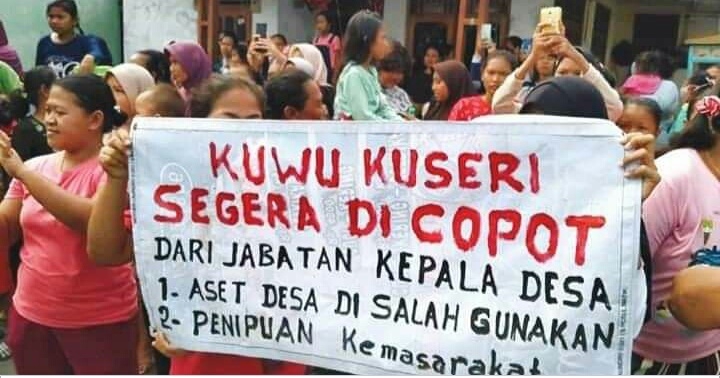 KUWU KUSERI
SEGERA DI COPOT
DARI JABATAN KEPALA DESA
1- ASET DESA DI SALAH GUNAKAN
2- PENIPUAN Kemasarakat